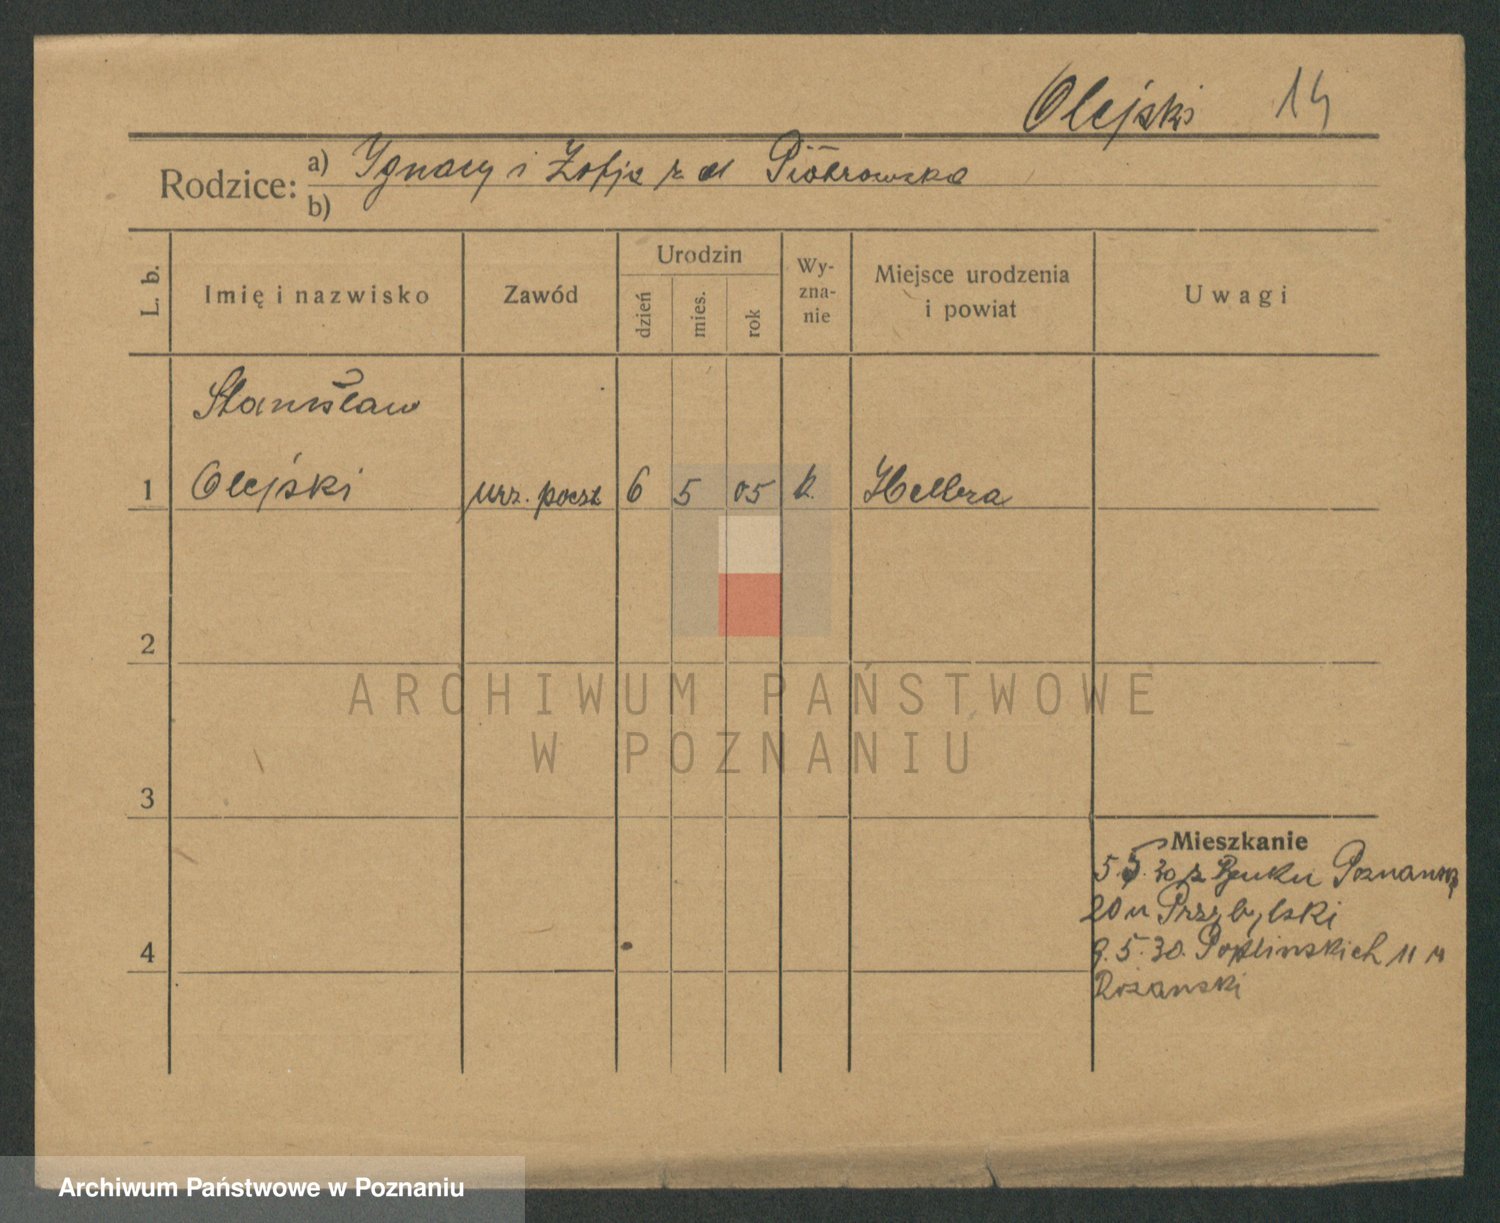 Olejski 14
Rodzice: a) Ignacy i Zofja z d Piotrowska
b)
L. b.
Imię i nazwisko
Zawód
Urodzin
dzień
mies.
rok
Wy-
zna-
nie
Miejsce urodzenia
i powiat
Uwagi
Stanisław
1 Olejski urz. poczt 6 5 05 k. Helbra
2
ARCHIWUM PAŃSTWOWE
W POZNANIU
3
Mieszkanie
5.5.30 z Poznańska
20 u Przybylski
9.5.30. Poplinskich 11 u
4
Różanski
Archiwum Państwowe w Poznaniu